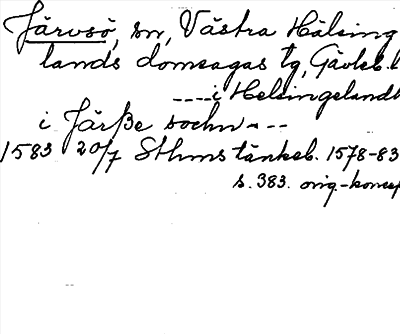 Järvsö, sn, Västra Hälsing
lands domsagas tg, Gävleb. l
---- i Helsingelandh
i Järße sochn - --
1583 20/7 Sthms tänkeb. 1578-83
s. 383. orig.-koncep